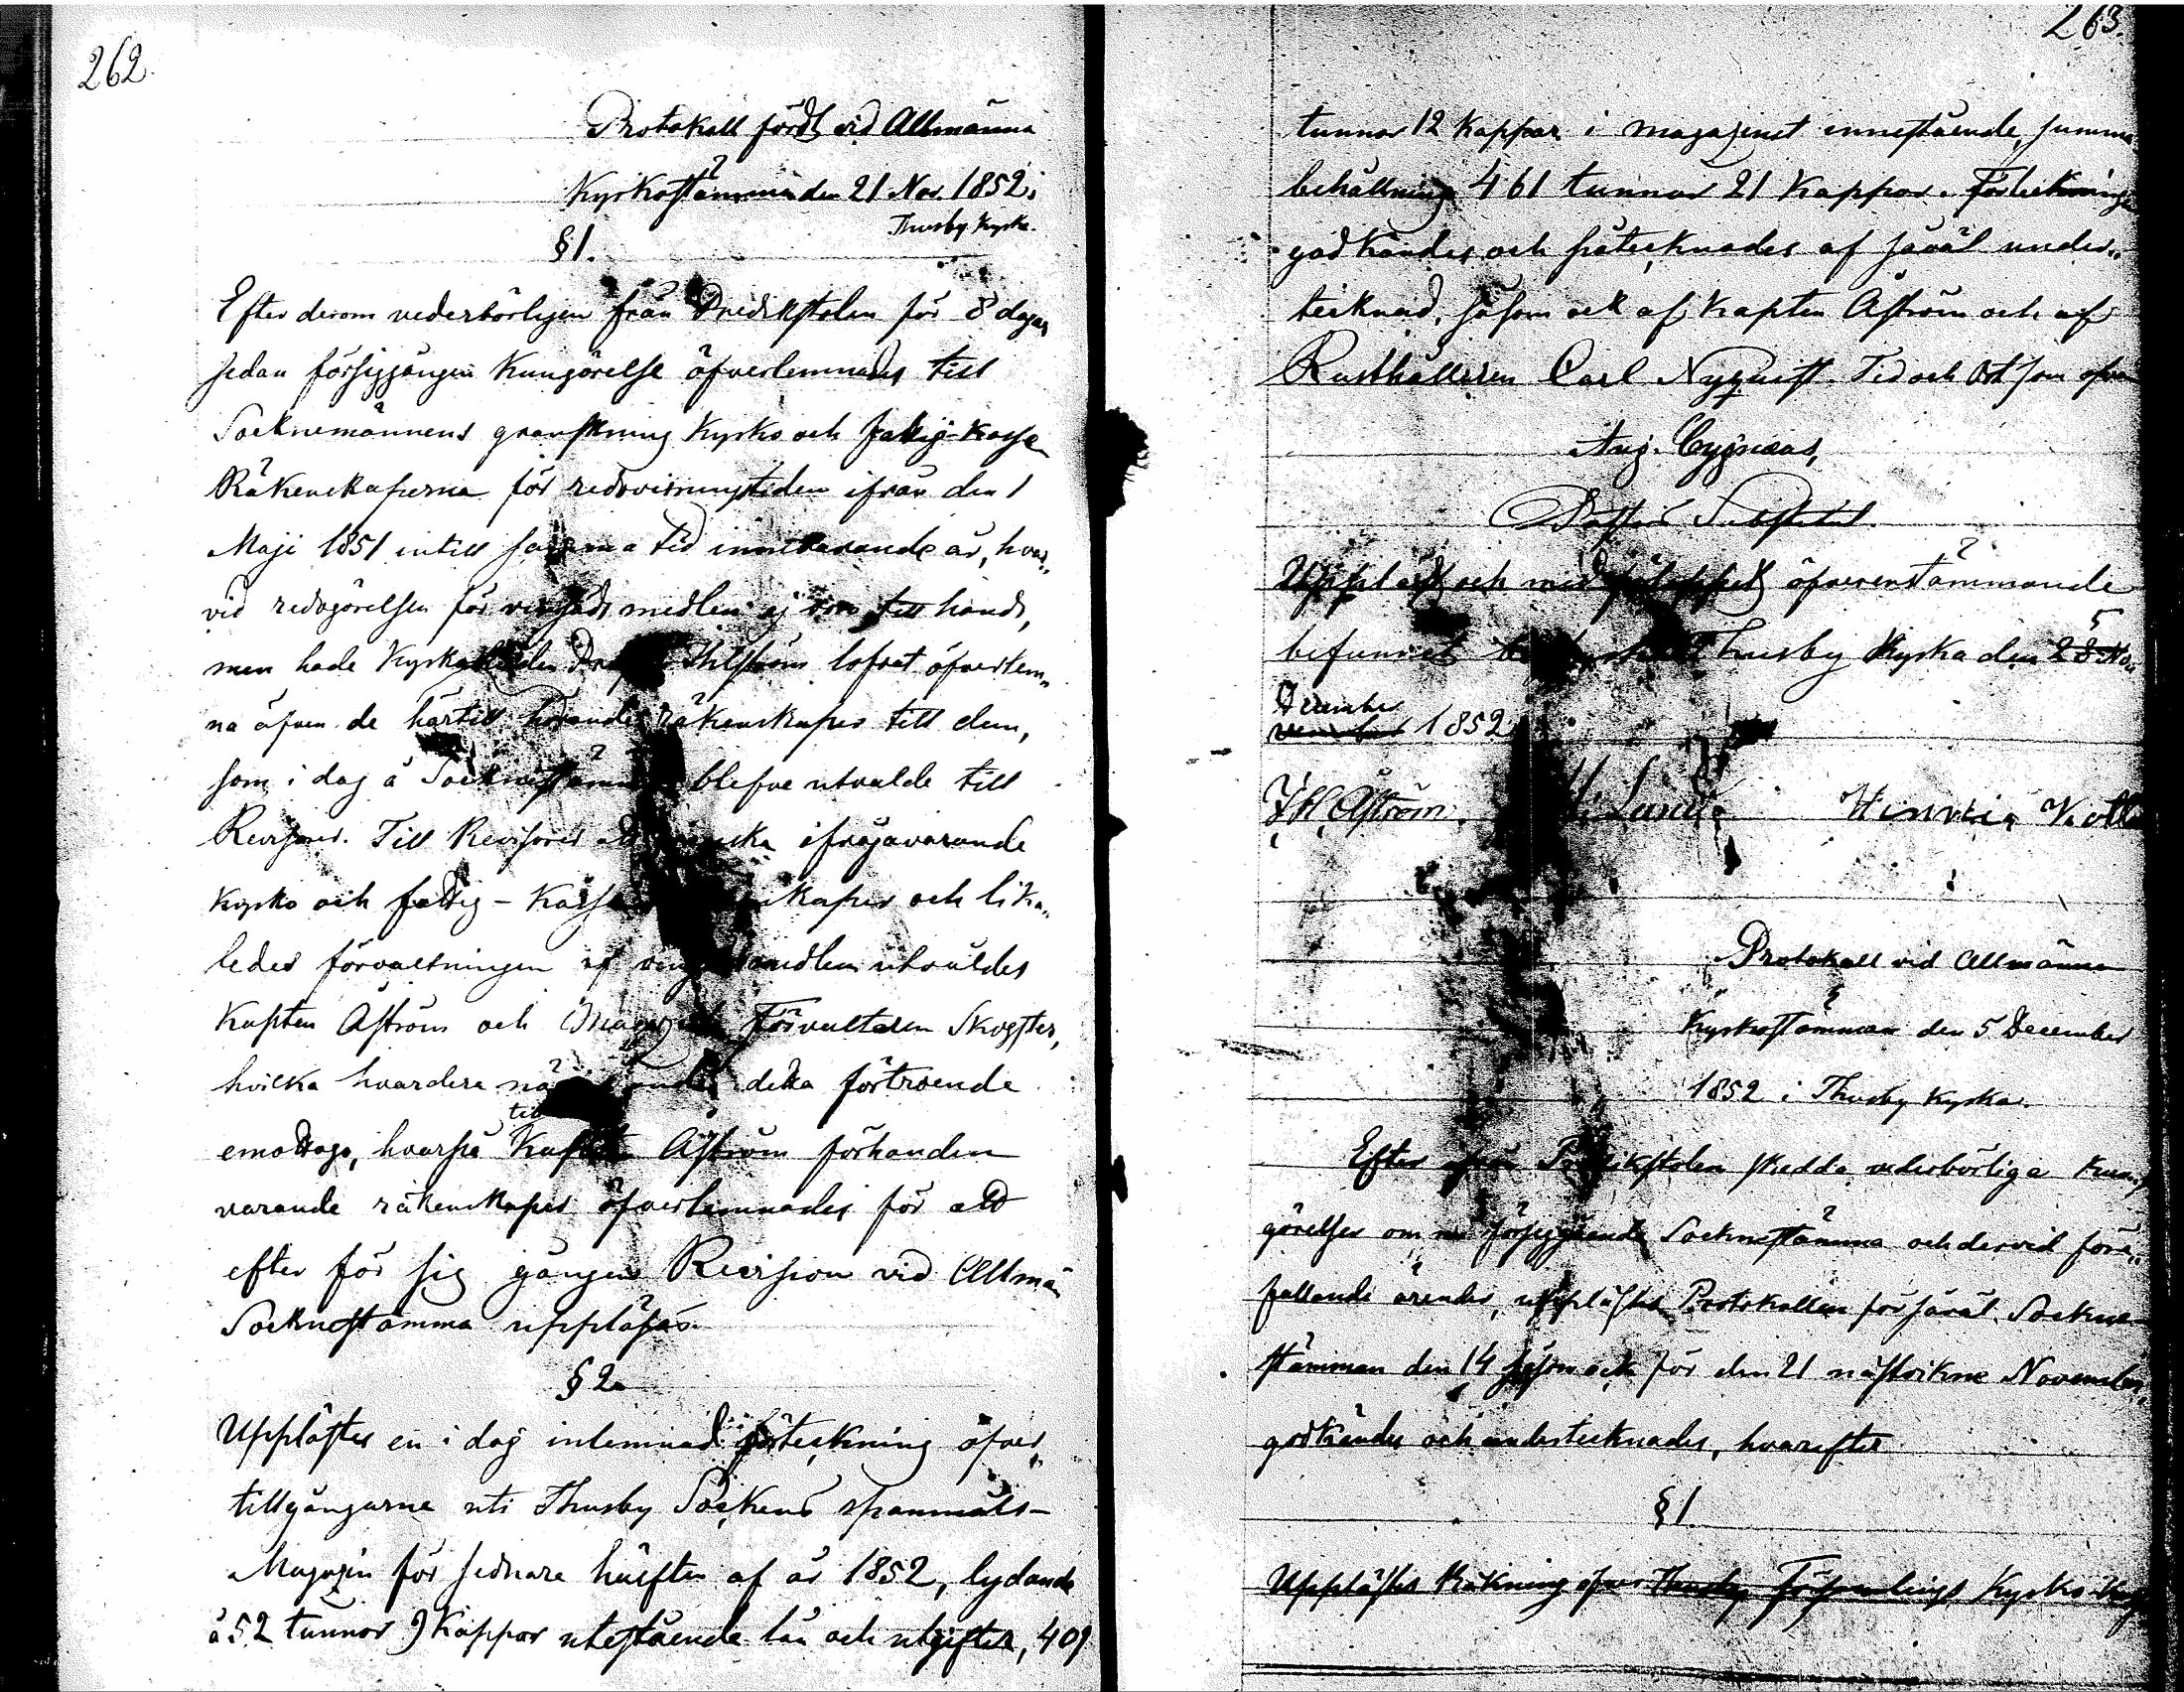 262.
Protokoll fördt vid Allmänna
Kyrkostämman den 21 Nov. 1852 i
Thusby Kyrka.
§ 1.
Efter derom vederbörligen från Predikstolen för 8 dagar
sedan försiggången kungörelse öfverlemnades till
Socknemännens granskning Kyrko och fattig-Kasse
Räkenskaperna för redovisningstiden ifrån den 1
Maji 1851 intill samma tid innevarande år, hvar„
vid redogörelsen för medlen ej var till hands,
men hade Kyrkovärden Thlström lofvat öfverlem„
na äfven de härtill hörande räkenskaper till dem,
som i dag å Sockne blefve utvalde till
Revisorer. Till Revisorer att ifrågavarande
Kyrko och fattig-Kasse och lika„
ledes förvaltningen af utvaldes
Kapten Åström och Magazins Förvaltaren Skogster,
hvilka hvardera detta förtroende
till
emottogo, hvarpå Kapten Åström förhanden
varande räkenskaper öfverlemnades för att
efter för sig gången Revision vid Allmän
Socknestämma uppläsas.
§ 2.
Upplästes en i dag inlemnad förteckning öfver
tillgångarne uti Thusby Sockens spanmåls-
Magazin för sednare hälften af år 1852, lydande
å 52 tunnor 9 Kappor utestående lån och utgifter, 409
263.
tunnor 12 Kappar i magazinet innestående, summa
behållning 461 tunnor 21 Kappor. Förteckningen
godkändes och påtecknades af såväl under„
tecknad, såsom ock af Kapten Åström och af
Rusthållaren Carl Nyqvist. Tid och Ort som ofvan
Aug. Cygnæus,
Pastors Substitut
Uppläst och öfverenstämmande
5
befunnet Thusby Kyrka den 28 No„
December
vember 1852
J H Åström. Lund Henric
Protokoll vid Allmänna
Kyrkostämman den 5 December
1852 i Thusby Kyrka.
Efter ifrån Predikstolen skedda vederbörliga kun„
görelser om nu försiggående Socknestämma och dervid före„
fallande ärender, upplästes Protokollen för såväl Sockne-
stämman den 14 såsom ock för den 21 nästvikne November,
godkändes och undertecknades, hvarefter
§ 1.
Upplästes Räkning öfver Thusby Församlings Kyrko